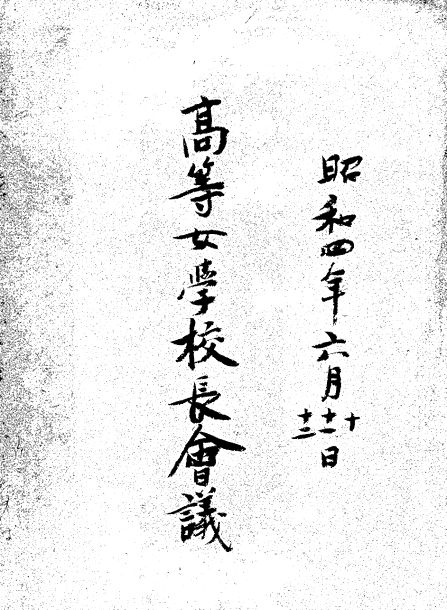 昭和四年六月十十一十二日
高等女學校長會議